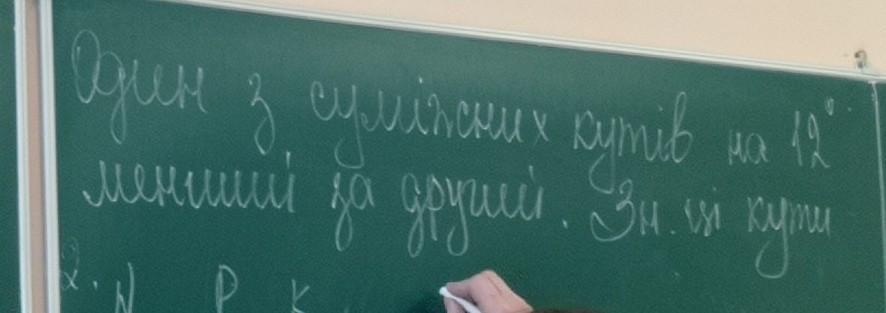 Один з суміжних кутів на 12°
менший за другий. Зн. ці кути
2. N P K